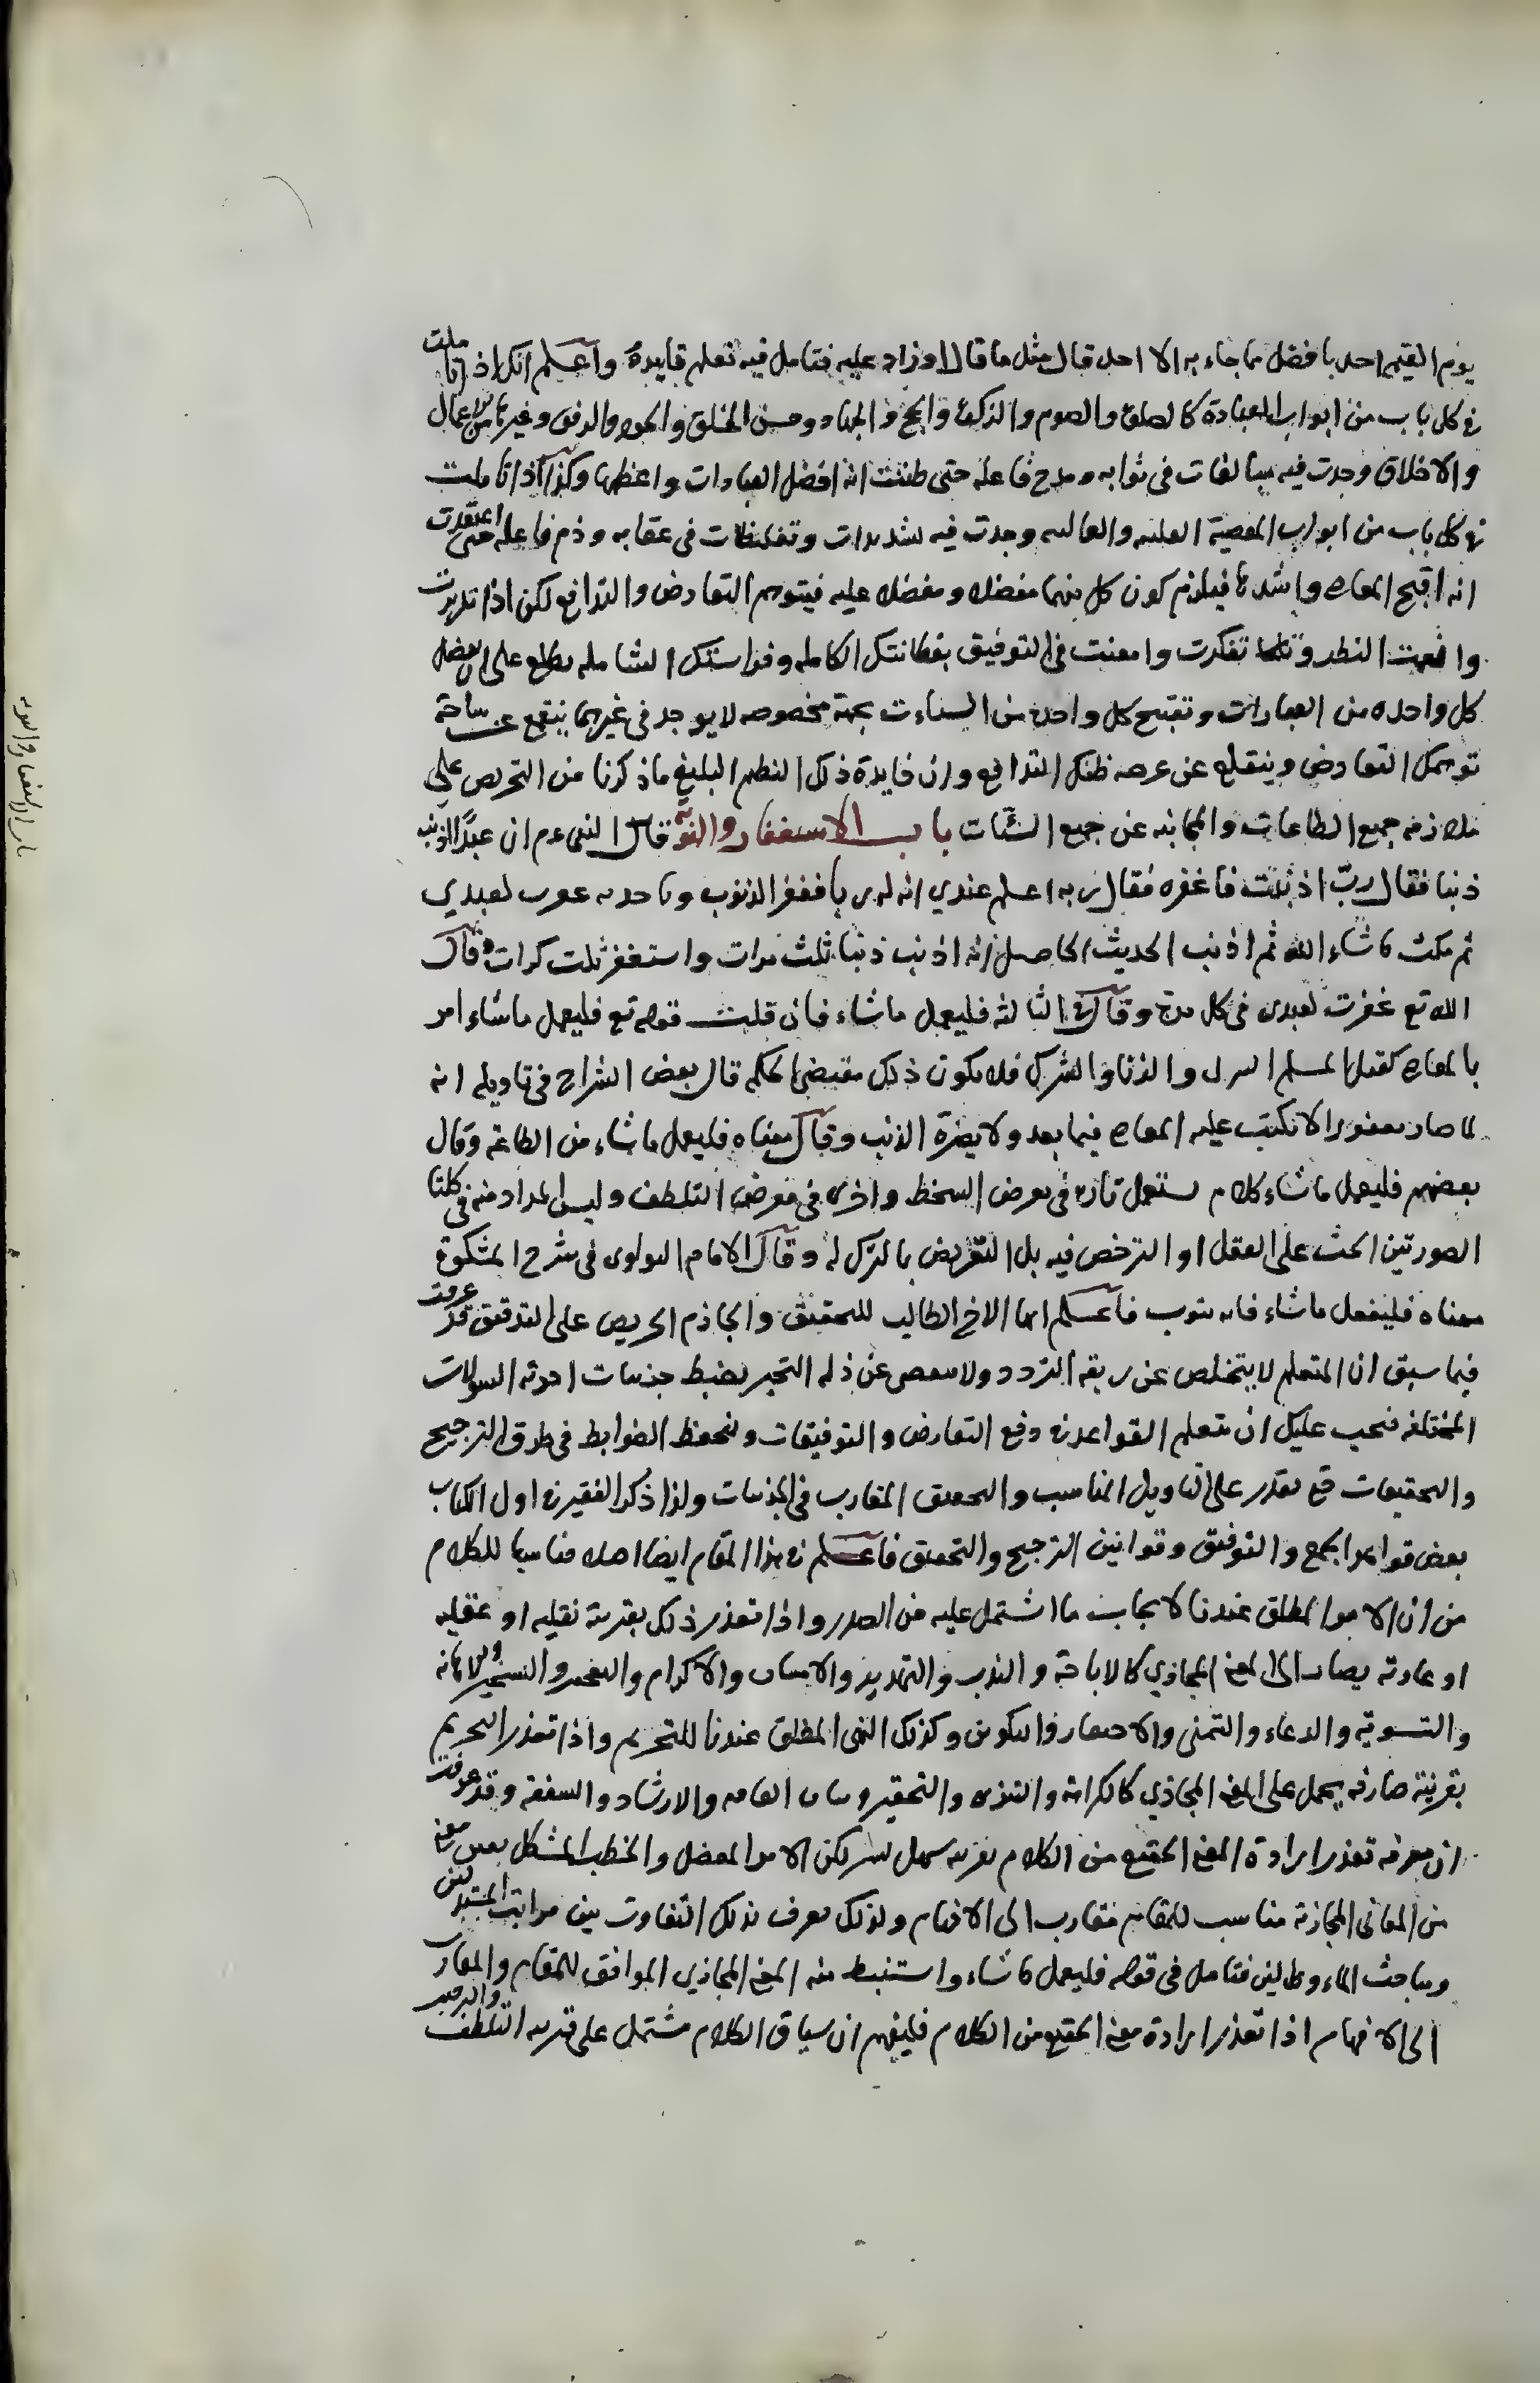 يوم القيمة احد بافضل مما جاء به الا احد قال مثل ما قال او زاد عليه فتامل فيه تعلم فايدة واعلم انك اذا تاملت
في كل باب من ابواب العبادة كالصلوة والصوم والزكوة والحج والجهاد وحسن الخلق والجود والرفق وغيرها من الاعمال
والاخلاق وجدت فيه مبالغات في ثوابه ومدح فاعله حتى ظننت انه افضل العبادات واعظمها وكذا اذا تاملت
في كل باب من ابواب المعصية وجدت فيه تشديدات وتغليظات في عقابه وذم فاعله حتى اعتقدت
انه اقبح المعاصي واشدها فيلزم كون كل منهما مفضلا ومفضلا عليه فيتوهم التعارض والتدافع لكن اذا تدبرت
وامعنت النظر وتفكرت وامعنت في التوفيق بفطانتك الكاملة وفراستك الشاملة تطلع على ان تفضيل
كل واحدة من العبادات وتقبيح كل واحدة من السيات بجهة مخصوصة لا يوجد في غيرهما ينقع عن ساحة
توهمك التعارض وينقلع عن عرصة ظنك التدافع وان فايدة ذلك النظم البليغ ما ذكرنا من التحريص على
ملازمة جميع الطاعات والمجانبة عن جميع السيئات باب الاستغفار والتوبة قال النبي عم ان عبدا اذنب
ذنبا فقال رب اذنبت فاغفره فقال ربه اعلم عبدي ان له ربا يغفر الذنوب وياخذ به غفرت لعبدي
ثم مكث ما شاء الله ثم اذنب الحديث الحاصل انه اذنب ذنبا ثلث مرات واستغفر ثلث كرات وقال
الله تع غفرت لعبدي في كل مرة وقال في الثالثة فليعمل ما شاء فان قلت قوله تع فليعمل ما شاء امر
بالمعاصي كقتل المسلم والزنا والشرك فلا يكون ذلك مقتضى الحكمة قال بعض الشراح في تاويله انه
لما صار مغفورا لا تكتب عليه المعاصي فيما بعد ولا يضره الذنب وقال معناه فليعمل ما شاء من الطاعة وقال
بعضهم فليعمل ما شاء كلام يستعمل تارة في معرض السخط واخرى في معرض التلطف وليس المراد منه في كلتا
الصورتين الحث على الفعل او الترخص فيه بل التعريض بالترك له وقال الامام النواوي في شرح المشكوة
معناه فليفعل ما شاء فانه يتوب فاعلم ايها الاخ الطالب للتحقيق والجازم الحريص على التدقيق قد عرفت
فيما سبق ان المتعلم لا يتخلص عن ربقة التردد ولا عن ذلة التحير بضبط جزئيات اجوبة السوالات
المختلفة فيجب عليك ان تتعلم القواعد في دفع التعارض والتوفيقات وتحفظ الضوابط في طرق الترجيح
والتحقيقات حتى تقدر على التاويل المناسب والتحقيق المقارب في الجزئيات ولذا ذكر الفقير في اول الكتاب
بعض قواعد الجمع والتوفيق وقوانين الترجيح والتحقيق فاعلم في هذا المقام ايضا اصلا مناسبا للكلام
من ان الامر المطلق عندنا لايجاب ما اشتمل عليه من المصدر واذا تعذر ذلك بقرينة نقلية او عقلية
او عادية يصار الى المعنى المجازي كالاباحة والندب والتهديد والامتنان والاكرام والتعجيز والتسخير والاهانة
والتسوية والدعاء والتمني والاحتقار والتكوين وكذلك النهي المطلق عندنا للتحريم واذا تعذر التحريم
بقرينة صارفة يحمل على المعنى المجازي كالكراهة والتنزيه والتحقير وبيان العاقبة والارشاد والشفقة وقد عرفت
ان معرفة تعذر ارادة المعنى الحقيقي من الكلام بقرينة سهل يسير لكن الامر المعضل والخطب المشكل تعيين معنى
من المعاني المجازية مناسب للمقام متقارب الى الافهام ولذلك يعرف بذلك التفاوت بين مراتب المستدلين
ومباحث فتامل في قوله فليعمل ما شاء واستنبط منه المعنى المجازي الموافق للمقام والمقارب
الى الافهام اذا تعذر ارادة معنى الحقيقي من الكلام فليفهم ان سياق الكلام مشتمل على قرينة التلطف والترحيب
باب الاستغفار والتوبة